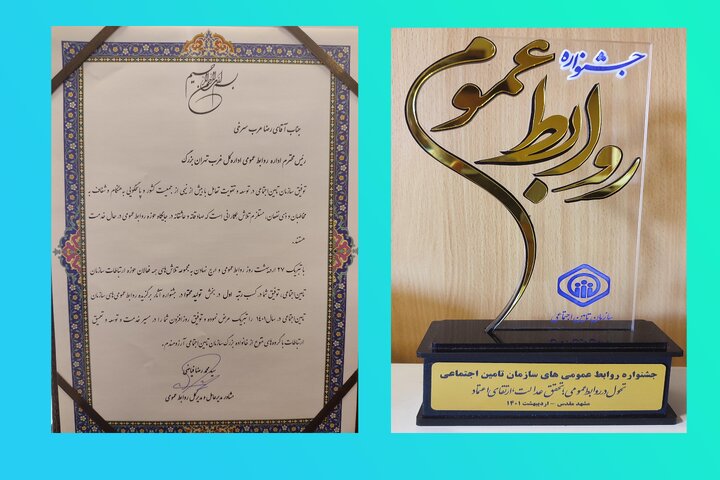 بسم الله الرحمن الرحیم
جناب آقای رضا عرب سرخی
رئیس محترم اداره روابط عمومی اداره‌کل غرب تهران بزرگ
توفیق سازمان تامین‌اجتماعی در توسعه و تقویت تعامل با بیش از نیمی از جمعیت کشور و پاسخگویی به‌هنگام و شفاف به
مخاطبان و ذی‌نفعان، مستلزم تلاش همکارانی است که صادقانه و عاشقانه در جایگاه حوزه روابط‌عمومی در حال خدمت
هستند.
با تبریک ۲۷ اردیبهشت روز روابط‌عمومی و ارج نهادن به مجموعه تلاش‌های همه فعالان حوزه ارتباطات سازمان
تامین‌اجتماعی، توفیق شما در کسب رتبه اول در بخش تولید محتوا در جشنواره آثار برگزیده روابط عمومی‌های سازمان
تامین‌اجتماعی در سال ۱۴۰۱ را تبریک عرض نموده و توفیق روزافزون شما را در مسیر خدمت و توسعه و تعمیق
ارتباطات با گروه‌های متنوع از خانواده بزرگ سازمان تامین‌اجتماعی آرزومندم.
سید محمدرضا
مشاور مدیرعامل و مدیرکل روابط عمومی
جشنواره
روابط عمومی
سازمان تامین اجتماعی
جشنواره روابط عمومی های سازمان تامین اجتماعی
تحول در روابط عمومی؛ تحقق عدالت، ارتقای اعتماد
مشهد مقدس - اردیبهشت ۱۴۰۱